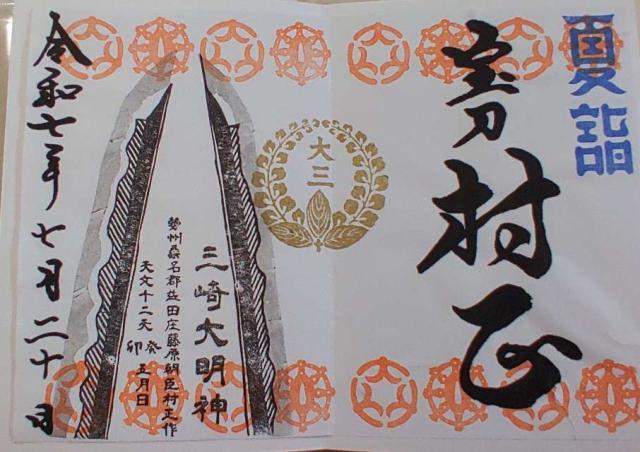 夏詣
宝刀村正
大三
三崎大明神
勢州桑名郡益田庄藤原朝臣村正作
天文十二天癸卯五月日
令和七年七月二十日